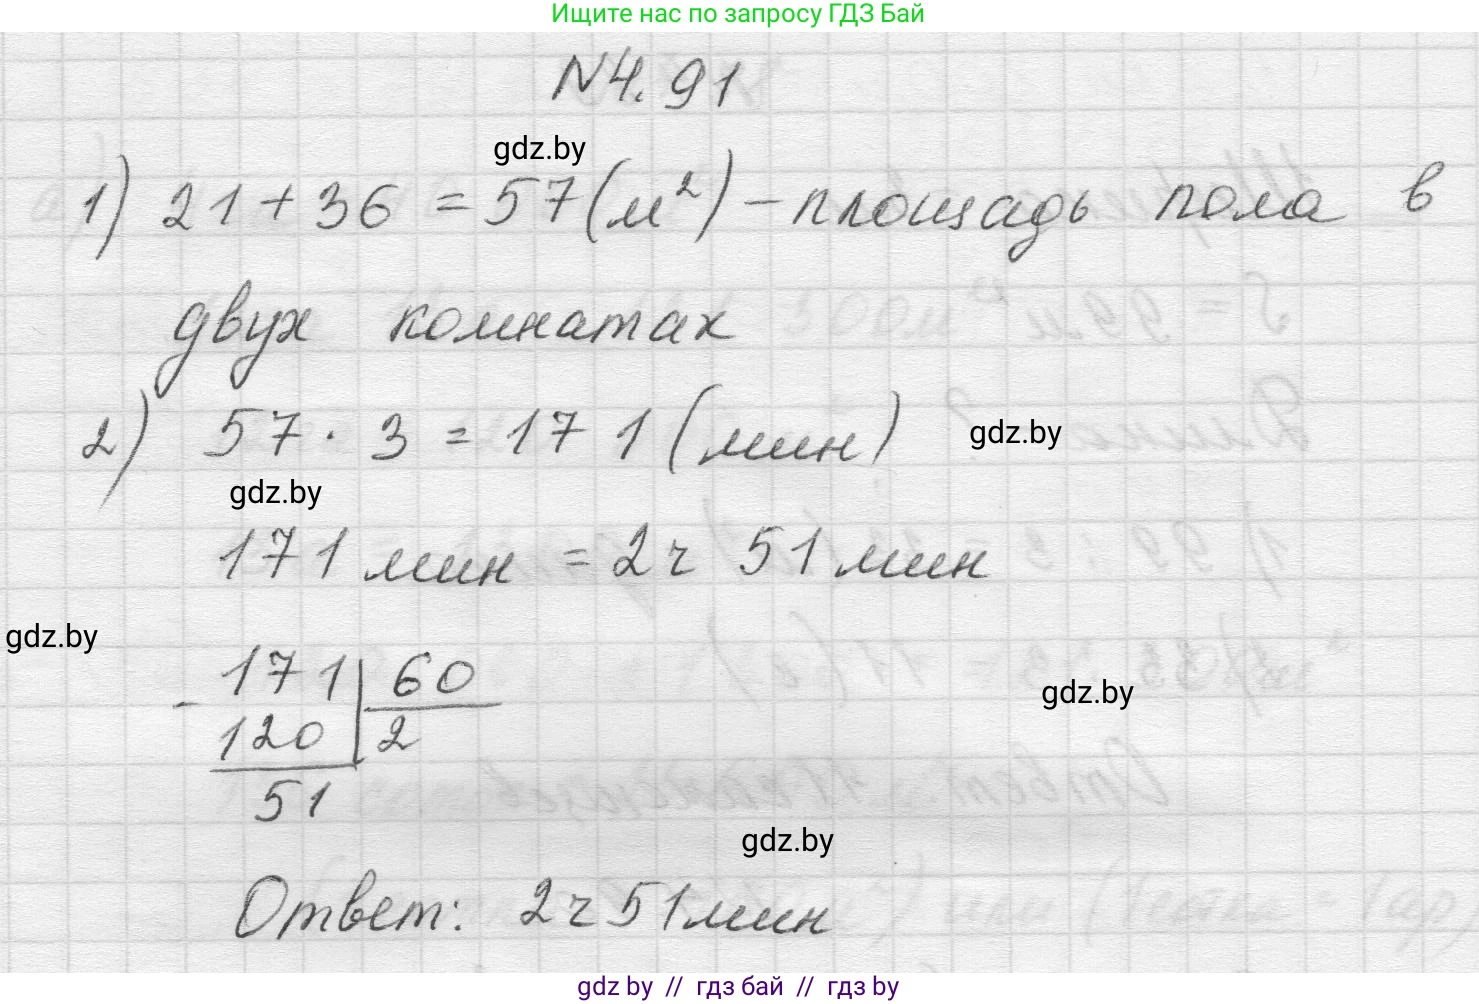 Ищите нас по запросу ГДЗ Бай
N4.91
gdz.by
1) 21 + 36 = 57 (м²) – площадь пола в
двух комнатах
2) 57 · 3 = 171 (мин)
gdz.by
gdz.by
171 мин = 2ч 51 мин
gdz.by
- 171 | 60
120 | 2
gdz.by
51
gdz.by
Ответ: 2ч 51мин
gdz by // гдз бай // гдз by